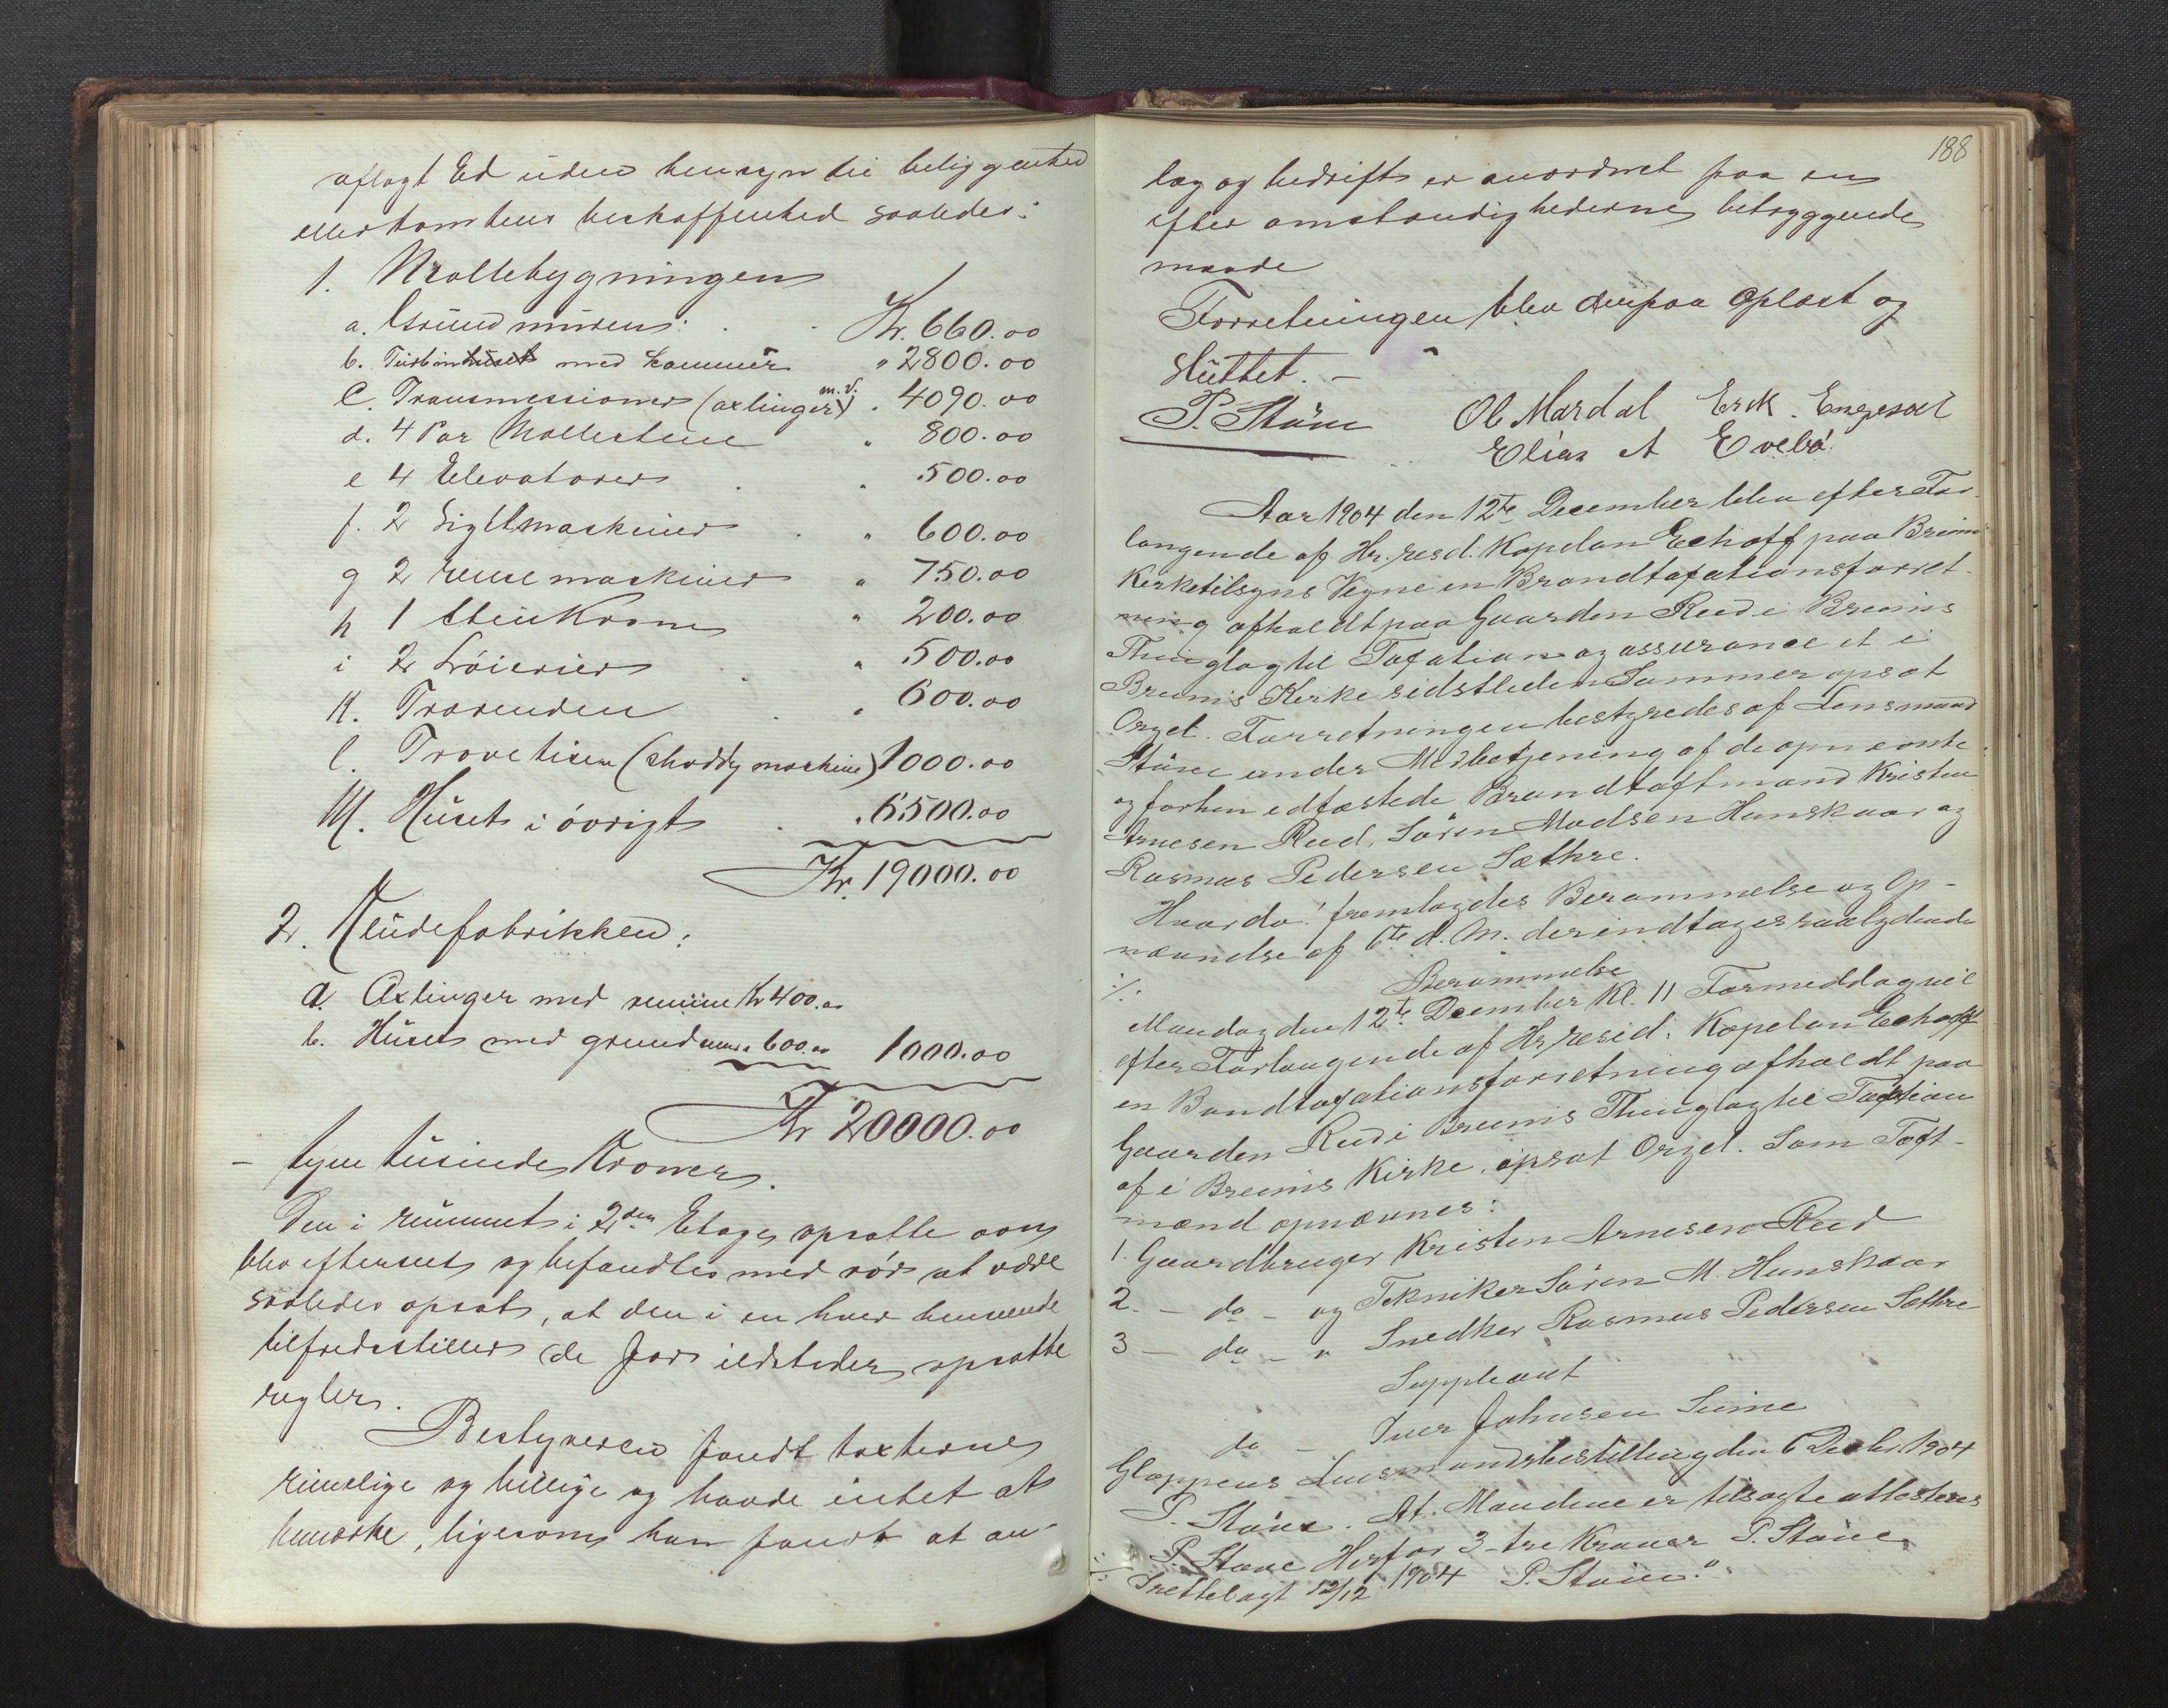 aflagt Ed uden hensyn til beliggenhed
eller tomtens beskaffenhed saaledes:
1. Møllebygningen
a. Grundmuren: . . Kr. 660.00
b. Turbinhuset med kammer " 2800.00
c. Transmessioner (axlinger m.v.) " 4090.00
d. 4 Par Møllestene " 800.00
e 4 Elevatorer . " 500.00
f. 2 Sigtmaskiner . " 600.00
g 2 rensemaskiner " 750.00
h 1 Stenkran " 200.00
i 2 Sværier . " 500.00
k. Trærenden . " 600.00
l. Trævetisen (shoddy maskine) 1000.00
M. Huset i øvrigt . " 6500.00
Kr. 19000.00
2. Kludefabrikken:
a Axlinger med remme Kr 400.00
b. Huset med grundmur " 600.00 1000.00
Kr 20000.00
- tyve tusinde Kroner.
Den i rummet i 2den Etage opsatte ovn
blev efterseet og befandtes med rør at være
saaledes opsat, at den i en hver henseende
tilfredsstiller de for ildsteder opsatte
regler.
Bestyreren fandt taxterne
rimelige og billige og havde intet at
bemærke, ligesom han fandt at an-
188
læg og bedrift er anordnet paa en
efter omstændighederne betryggende
maade
Forretningen blev derpaa oplæst og
sluttet. -
P. Støve Ol Mardal Erik. Engesæt
Elias A Evebø
Aar 1904 den 12te December blev efter For-
langende af Hr. resd. Kapelan Eckhoff paa Breims
Kirketilsyns Vegne en Brandtaxationsforret-
ning afholdt paa Gaarden Reed i Breims
Thinglag til Taxation og assurance et i
Breims Kirke sidstleden Sommer opsat
Orgel. Forretningen bestyredes af Lensmand
Støve under Medbetjening af de opnævnte
og forhen edfæstede Brandtaxtmænd Kristen
Arnesen Reed, Søren Madsen Hunskaar og
Rasmus Pedersen Sæthre.
Hvorda! fremlagdes Berammelse og Op-
nævnelse af 6te d. M. der indtages saalydende
·/· Berammelse
Mandag den 12te December Kl. 11 Formiddag vil
efter Forlangende af Hr, resid. Kapelan Eckhoff
en Bandtaxationsforretning afholdt paa
Gaarden Reed i Breims Thinglag til Taxtion
af i Breims Kirke, opsat Orgel. Som Taxt-
mænd opnævnes:
1. Gaardbruger Kristen Arnesen Reed
2. - do - og Tekniker Søren M. Hunskaar
3 - do - " Snedker Rasmus Pedersen Sæthre
Suppleant
do - Iver Johnsen Seime
Gloppens Lensmandsbestilling den 6 Decbr. 1904
P. Støve. At. Mændene er tilsagte attesteres
P. Støve Herfor 3 - tre Kroner P. Støve
·/· Fremlagt 12/12 1904 P. Støve."